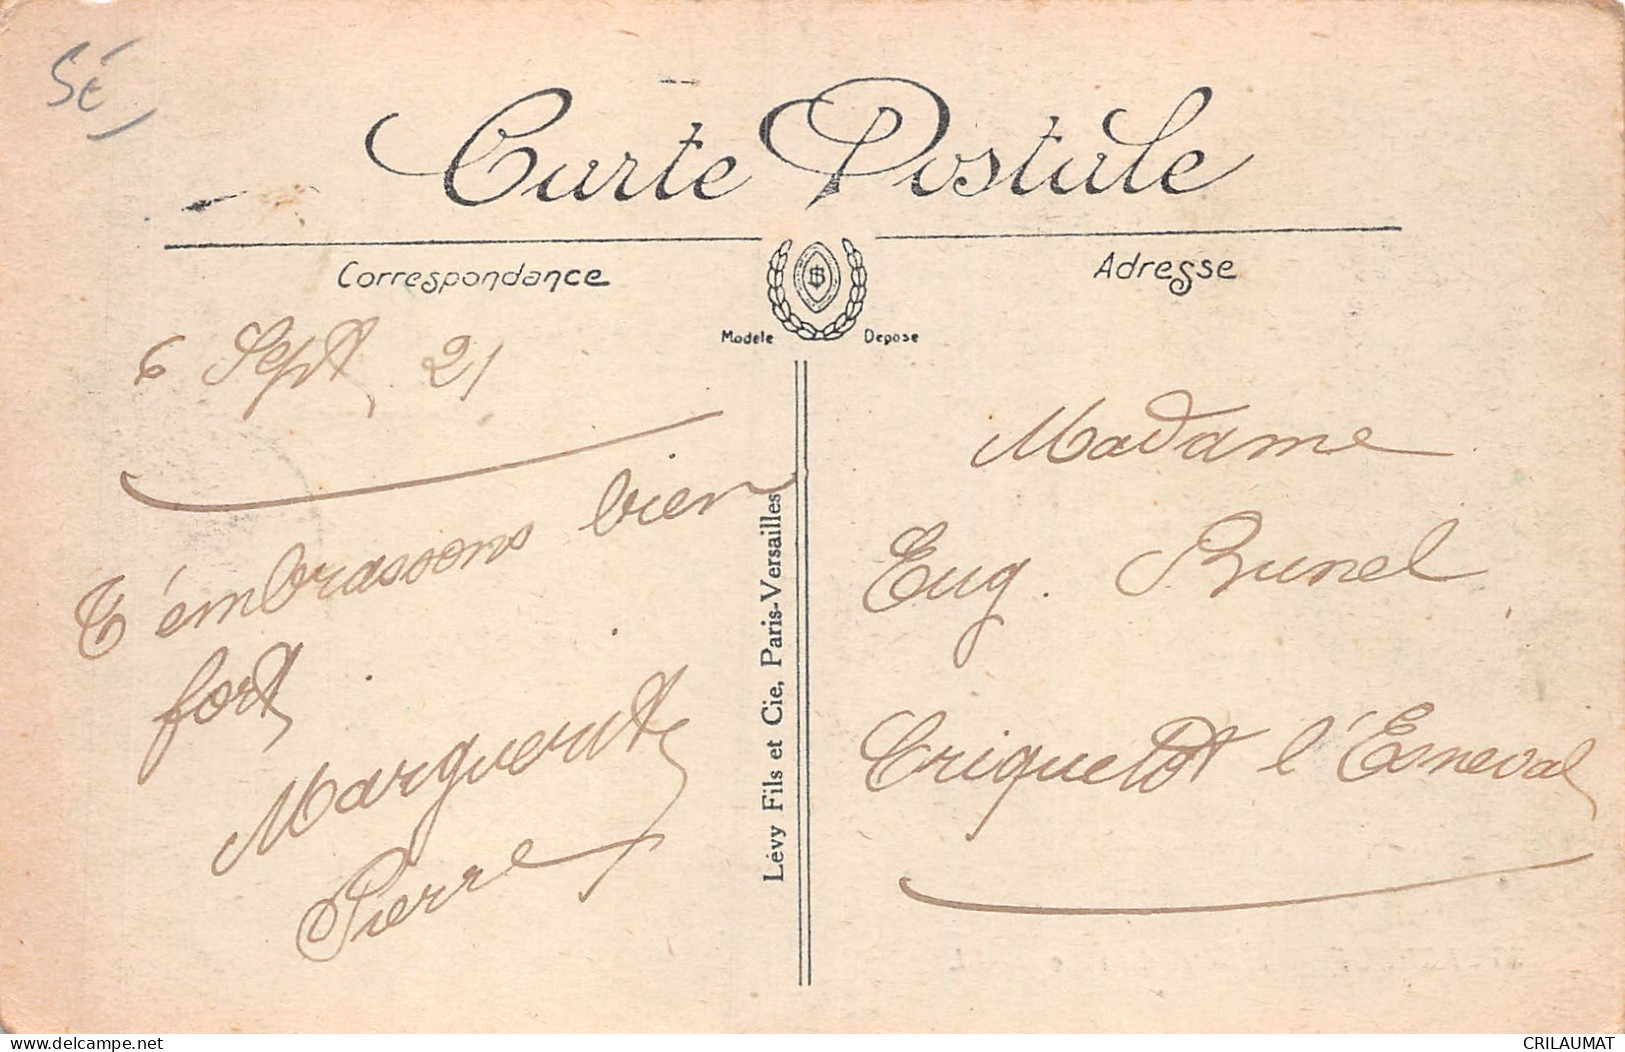 Sé
Carte Postale
Correspondance
Adresse
Modèle Déposé
6 Sept 21
T'embrassons bien
fort
Marguerite
Pierre
Lévy Fils et Cie, Paris-Versailles
Madame
Eug. Brunel
Criquetot l'Esneval
delcampe.net
CRILAUMAT